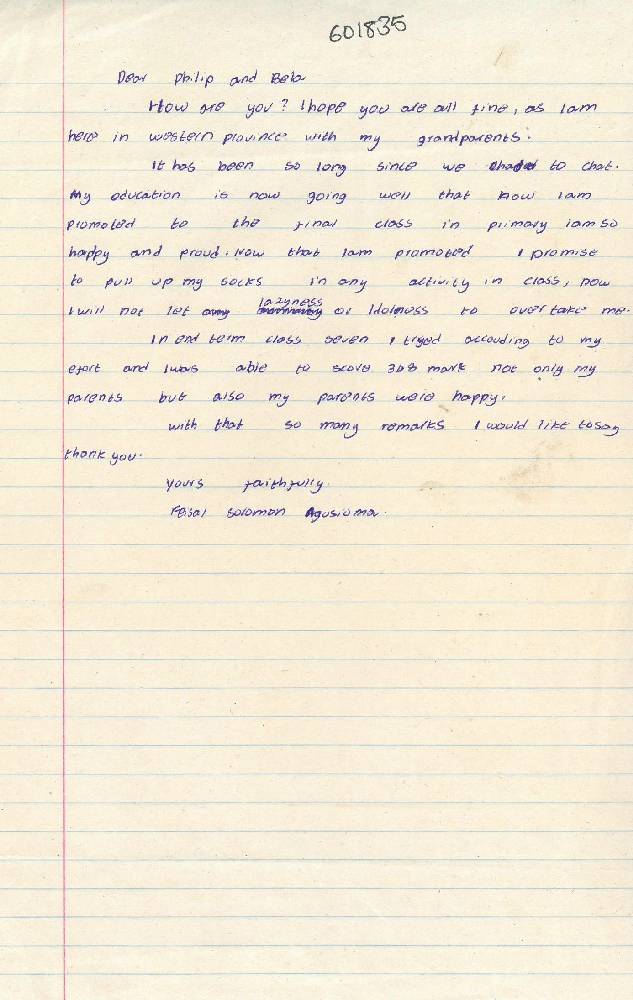 601835
Dear Philip and Bela
How are you? I hope you are all fine, as I am
here in western province with my grandparents.
It has been so long since we to chat.
My education is now going well that now I am
promoted to the final class in primary iam so
happy and proud. Now that I am promoted I promise
to pull up my socks in any activity in class, now
I will not let lazyness or Idolness to overtake me.
In end term class seven I tryed accouding to my
efort and I was able to score 308 mark not only my
parents but also my parents were happy.
with that so many remarks I would like to say
thank you.
yours faithfully.
Feisal Solomon Agusioma.